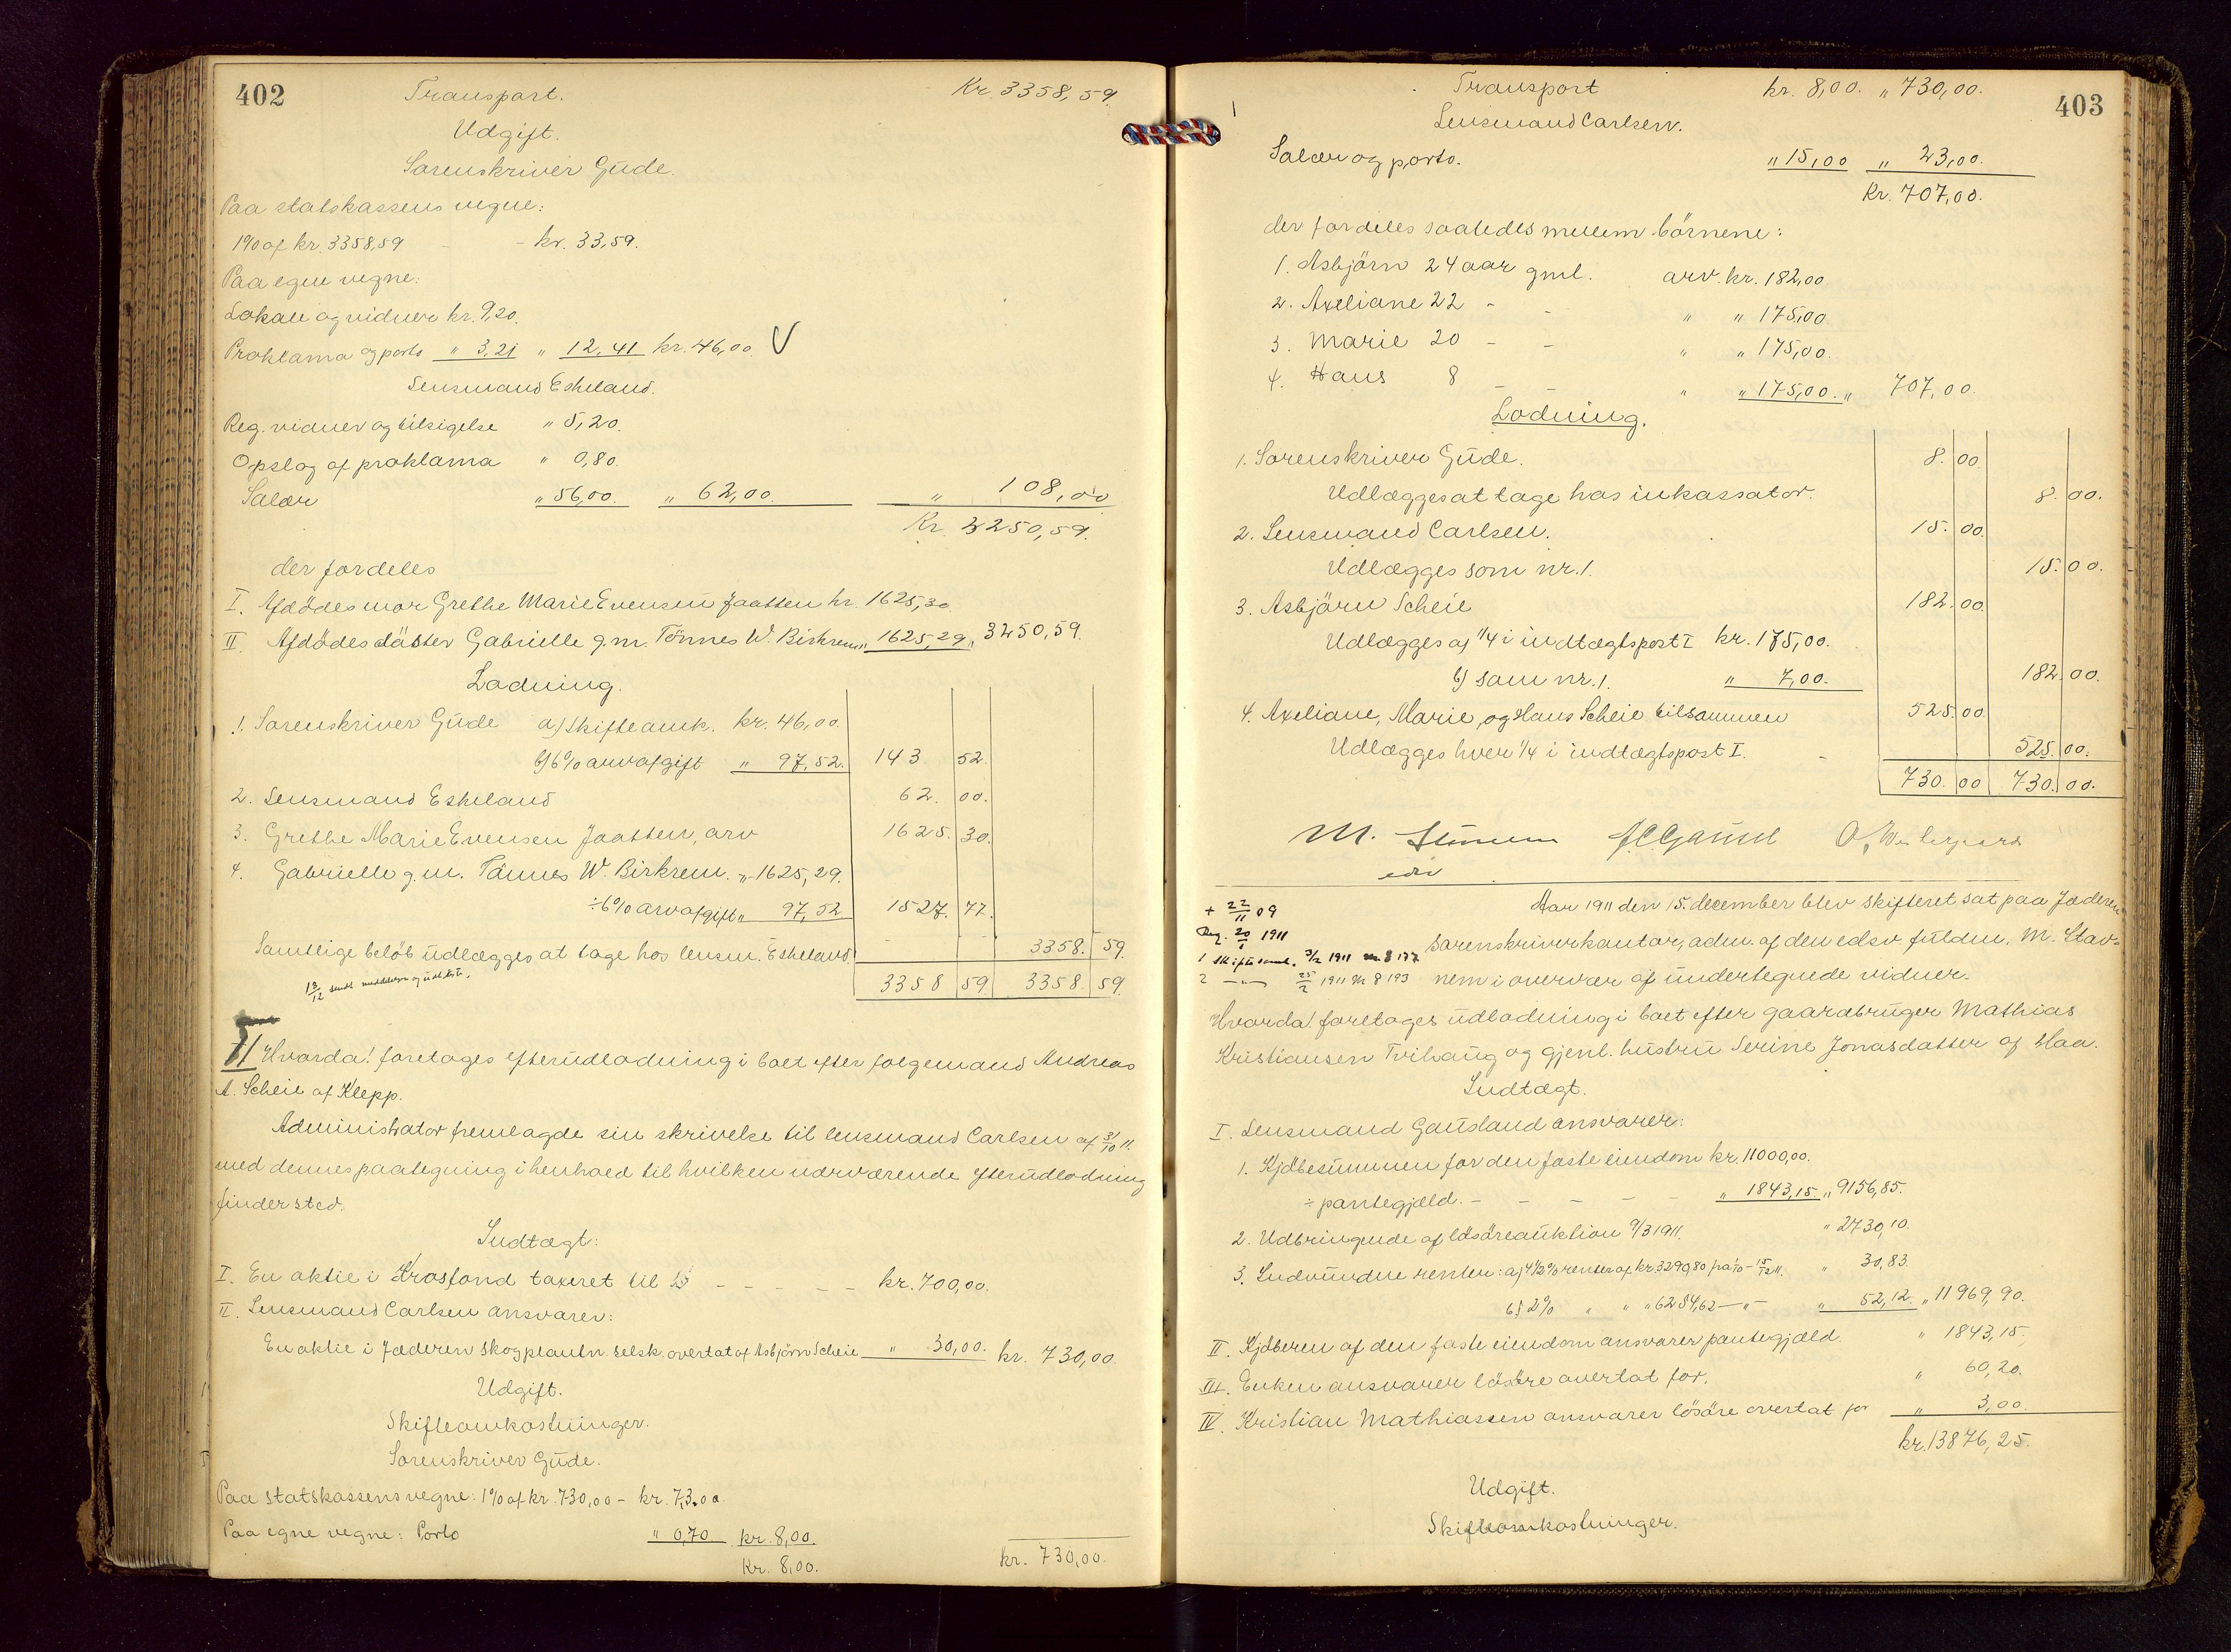 402
Transport. Kr. 3358,59.
Udgift.
Sorenskriver Gude.
Paa statskassens vegne:
1% af kr. 3358,59 - - kr. 33,59.
Paa egne vegne:
Lokale og vidner kr. 9,20.
Proklama og porto " 3,21 " 12,41 kr. 46,00. V
Lensmand Eskeland.
Reg. vidner og tilsigelse " 5,20.
Opslag af proklama " 0,80.
Salær " 56,00. " 62,00. " 108,00
Kr. 3250,59.
der fordeles
I. Afdödes mor Grethe Marie Evensen Jaatten kr. 1625,30
II Afdödes däster Gabrielle g.m. Tönnes W. Birkrem " 1625,29 " 3250,59.
Lodning.
1. Sorenskriver Gude a) Skifteomk. kr. 46,00.
b) 6% arvafgift " 97,52. 143 52.
2. Lensmand Eskeland 62. 00.
3. Grethe Marie Evensen Jaatten, arv 1625. 30.
4. Gabrielle g.m. Tönnes W. Birkrem. " 1625,29.
÷ 6% arvafgift " 97,52 1527. 77.
Samtlige beløb udlægges at tage hos lensm. Eskeland. 3358. 59.
13/12 sendt
3358 59 3358. 59.
II Hvorda! foretages efterudlodning i boet efter folgemand Andreas
A. Scheie af Klepp.
Administrator fremlagde sin skrivelse til lensmand Carlsen af 31/10 11.
med dennes paategning i henhold til hvilken nærværende efterudlodning
finder sted.
Indtægt:
I. En aktie i Krosfond taxeret til - - - - - kr. 700,00.
II. Lensmand Carlsen ansvarer:
En aktie i Jæderen skogplantn. selsk. overtat af Asbjörn Scheie " 30,00. kr. 730,00.
Udgift.
Skifteomkostninger.
Sorenskriver Gude.
Paa statskassens vegne: 1% af kr. 730,00 - kr. 7,3.00
Paa egne vegne: Porto " 0,70 kr. 8,00.
Kr. 8,00. kr. 730,00.
403
Transport kr. 8,00. " 730,00.
Lensmand Carlsen.
Salær og porto. " 15,00 " 23,00.
Kr. 707,00.
der fordeles saaledes mellem börnene:
1. Asbjörn 24 aar gml. arv. kr. 182,00
2. Axeliane 22 - - " " 175,00
3. Marie 20 - - " " 175,00.
4. Hans 8 - - " " 175,00. " 707,00.
Lodning.
1. Sorenskriver Gude. 8. 00
Udlægges at tage hos inkassator. 8. 00.
2. Lensmand Carlsen. 15. 00
Udlægges som nr. 1. 15. 00.
3. Asbjörn Scheie 182. 00
Udlægges a) 1/4 i indtægtspost I kr. 175,00.
b) som nr. 1. " 7,00. 182. 00.
4. Axeliane, Marie, og Hans Scheie tilsammen 525. 00.
Udlægges hver 1/4 i indtægtspost I. 525. 00.
730. 00 730. 00.
M.
edv
+ 22/11 09
Reg. 20/1 1911
1 skiftesaml. 3/2 1911 nr. 8 177
2 - " - 25/2 1911 nr 8 193
Aar 1911 den 15. december blev skifteret sat paa Jæderen
sorenskriverkontor, adm. af den edsv. fuldm. M. Stav-
nem i overvær af undertegnede vidner.
Hvorda! foretages udlodning i boet efter gaardbruger Mathias
Kristiansen Tvihaug og gjenl. hustru Serine Jonasdatter af Haa.
Indtægt.
I. Lensmand Gausland ansvarer:
1. Kjöbesummen for den faste eiendom kr. 11000,00.
÷ pantegjæld. - - - - - " 1843,15 " 9156,85.
2. Udbringende af lösöreauktion 9/3 1911. " 2730,10.
3. Indvundne renter: a) 4 1/2% renter af kr. 3290,80 fra 1/10 - 15/12 11. " 30,83.
b) 2% " " " 6284,62 - " - " 52,12. " 11969,90.
II. Kjöberen af den faste eiendom ansvarer pantegjæld. " 1843,15.
III. Enken ansvarer lösöre overtat for. " 60,20.
IV. Kristian Mathiassen ansvarer lösöre overtat for " 3,00.
kr. 13876,25.
Udgift.
Skifteomkostninger.